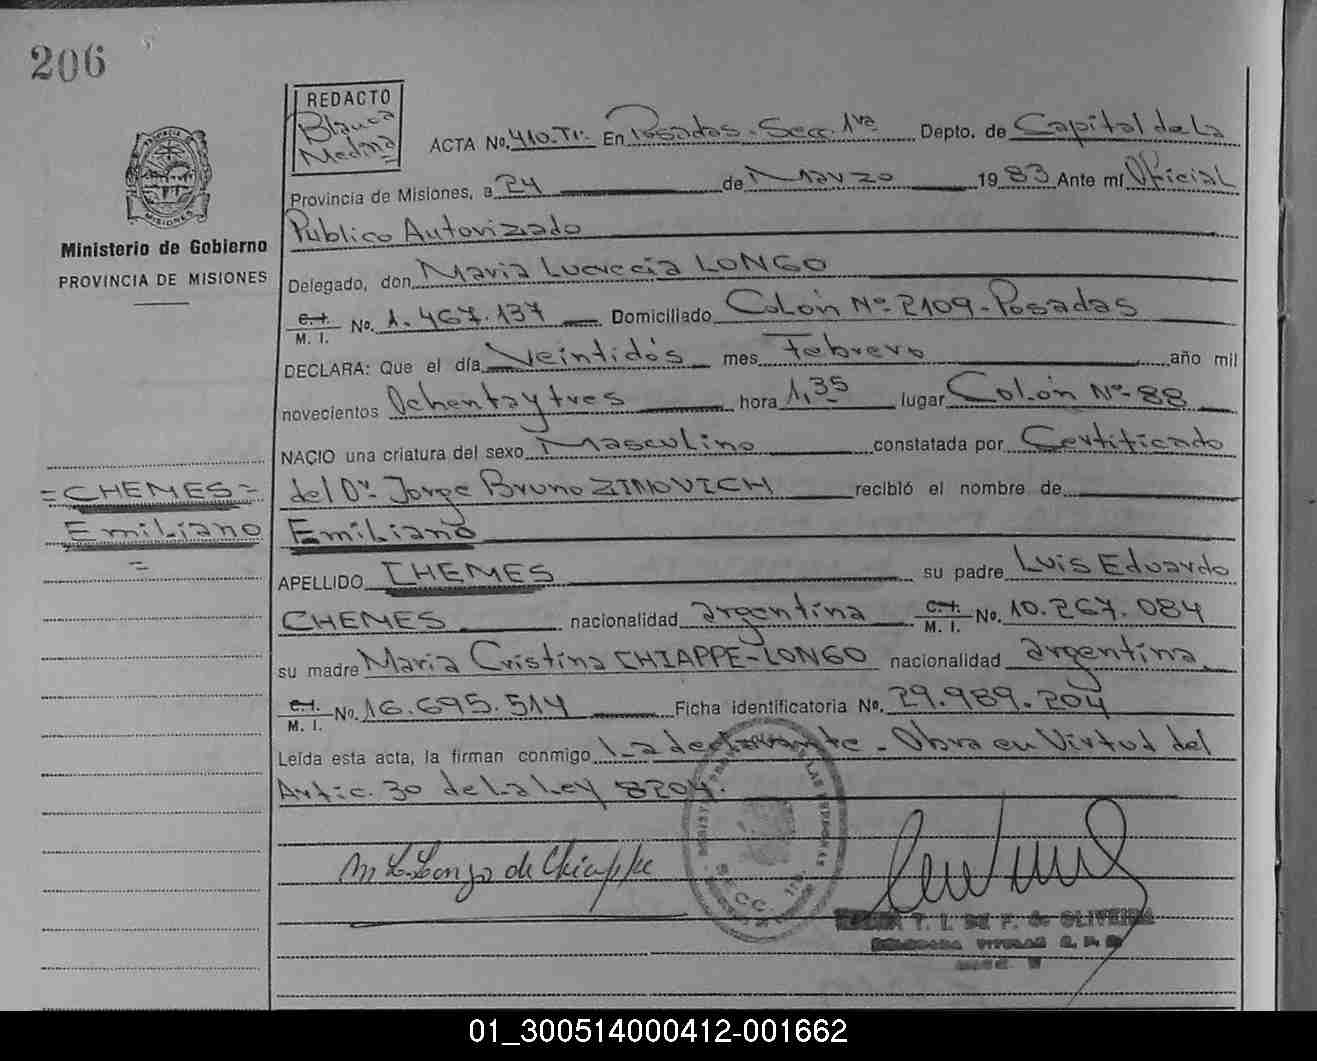 206
REDACTO
Blanca
Medina
ACTA No. 410.TI. En Posadas. Secc. 1ra Depto. de Capital de La
Provincia de Misiones, a 24 de Marzo 1983 Ante mí Oficial
Publico Autorizado
MISIONES
Ministerio de Gobierno
PROVINCIA DE MISIONES
Delegado, don Maria Lucrecia LONGO
C.I.
M. I. No. 1.467.137 Domiciliado Colón Nº 2109-Posadas
DECLARA: Que el día Veintidós mes Febrero año mil
novecientos Ochenta y tres hora 1,35 lugar Colón Nº-88
NACIO una criatura del sexo Masculino constatada por Certificado
=CHEMES= del Dr. Jorge Bruno ZIMOVICH recibió el nombre de
Emiliano Emiliano
=
APELLIDO CHEMES su padre Luis Eduardo
CHEMES nacionalidad argentina C.I. M. I. No. 10.267.084
su madre Maria Cristina CHIAPPE-LONGO nacionalidad argentina
C.I.
M. I. No. 16.695.514 Ficha identificatoria No. 29.989.204
Leída esta acta, la firman conmigo La declarante - Obra en Virtud del
Artic. 30 de La Ley 8204.
M L. Longo de Chiappe
SECC. 1ra.
T. I. DE F. de OLIVEIRA
01_300514000412-001662